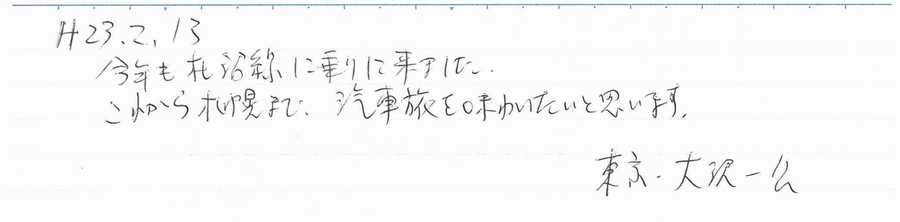 H23.2.13
今年も札沼線に乗りに来ました.
これから札幌まで、汽車旅を味わいたいと思います.
東京・大沢一公